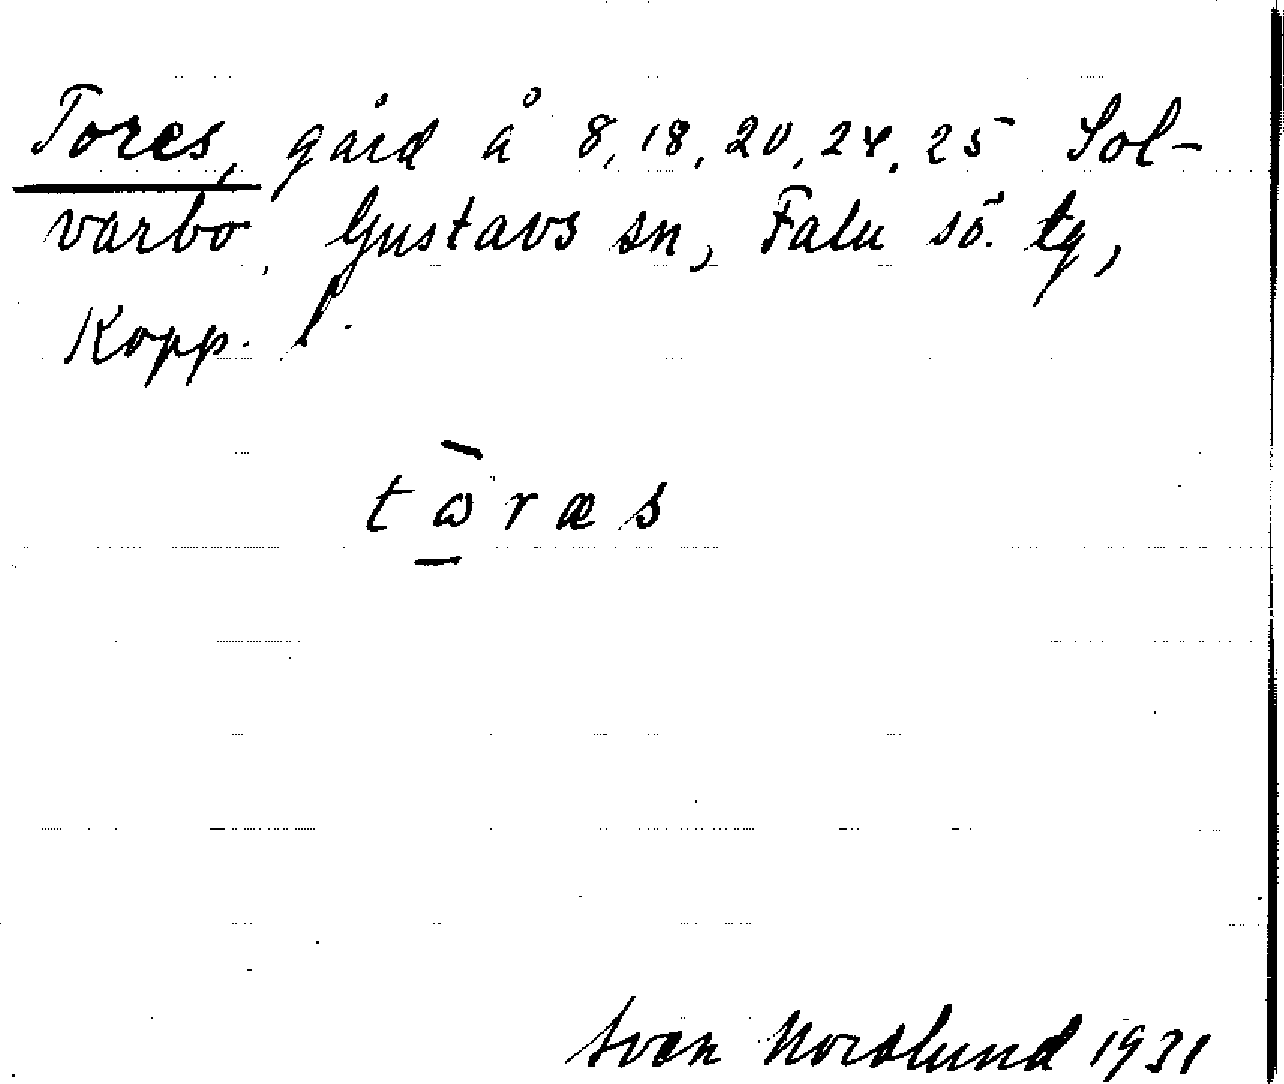 Tores, gård å 8, 18, 20, 24, 25 Sol-
varbo, Gustavs sn, Falu sö. tg,
Kopp. l.
tὼræs
Sven Nordlund 1931